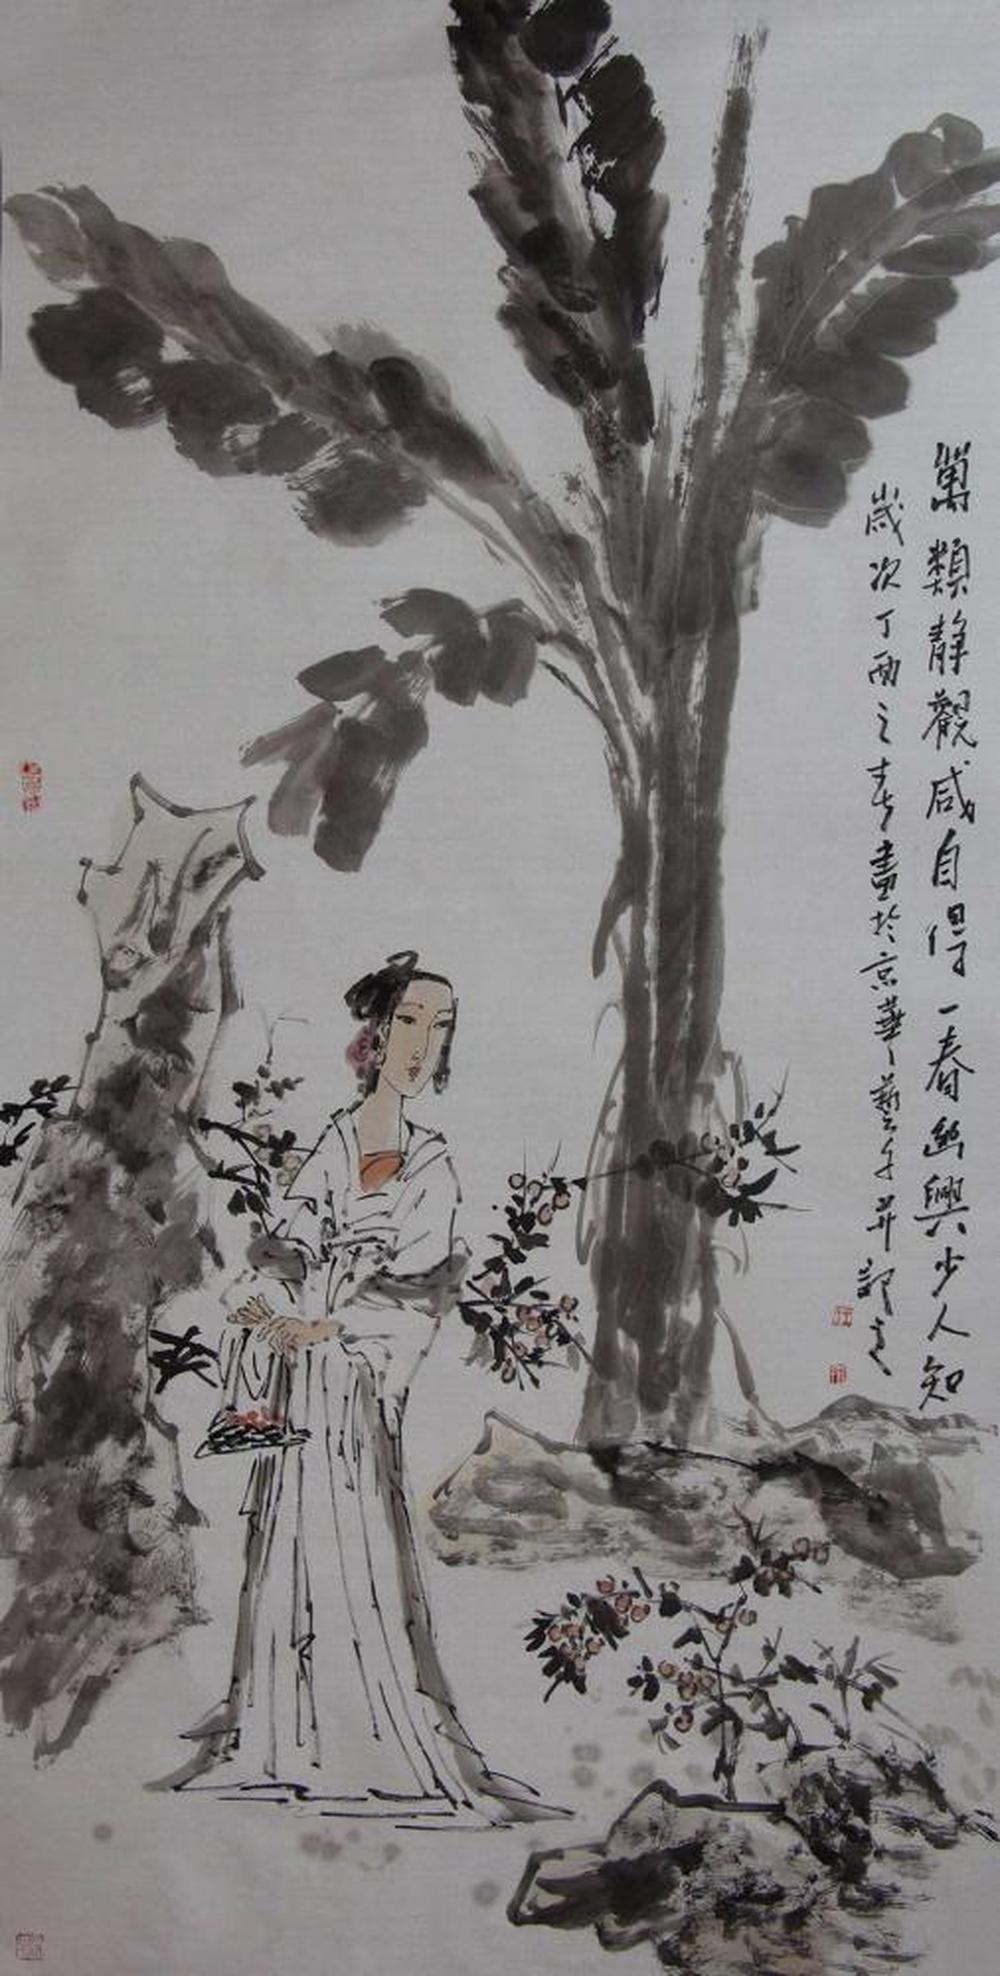 萬類静觀咸自得一春幽興少人知
歲次丁酉之春畫於京華藝年并記之